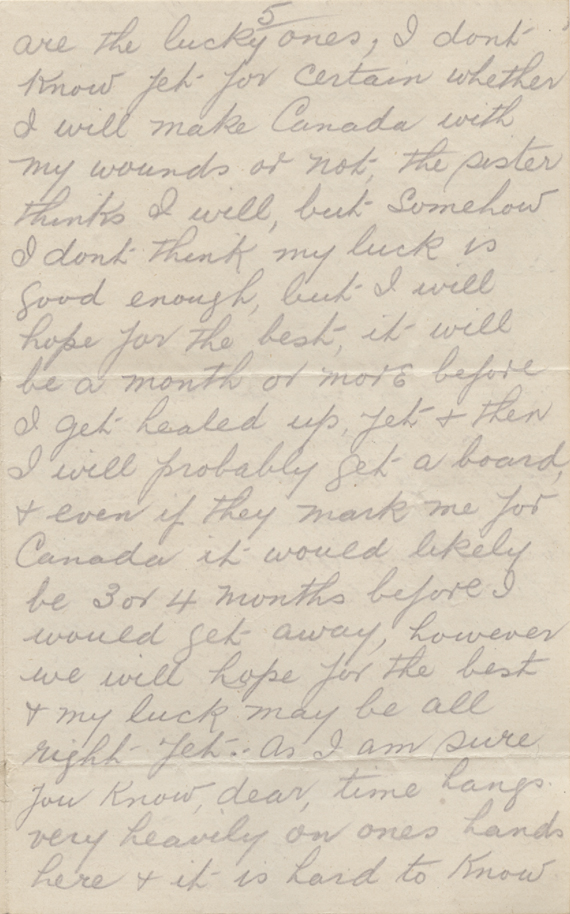 5
are the lucky ones, I dont
Know yet for certain whether
I will make Canada with
my wounds or not, the sister
thinks I will, but Somehow
I dont think my luck is
good enough, but I will
hope for the best, it will
be a month or more before
I get healed up, yet & then
I will probably get a board,
& even if they mark me for
Canada it would likely
be 3 or 4 months before I
would get away, however
we will hope for the best
& my luck may be all
right yet:- As I am sure
you Know, dear, time hangs
very heavily on ones hands
here & it is hard to Know